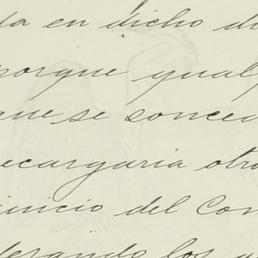 da en dicho d
porque qual
que se conced
recargaria otro
juicio del Con
derando los